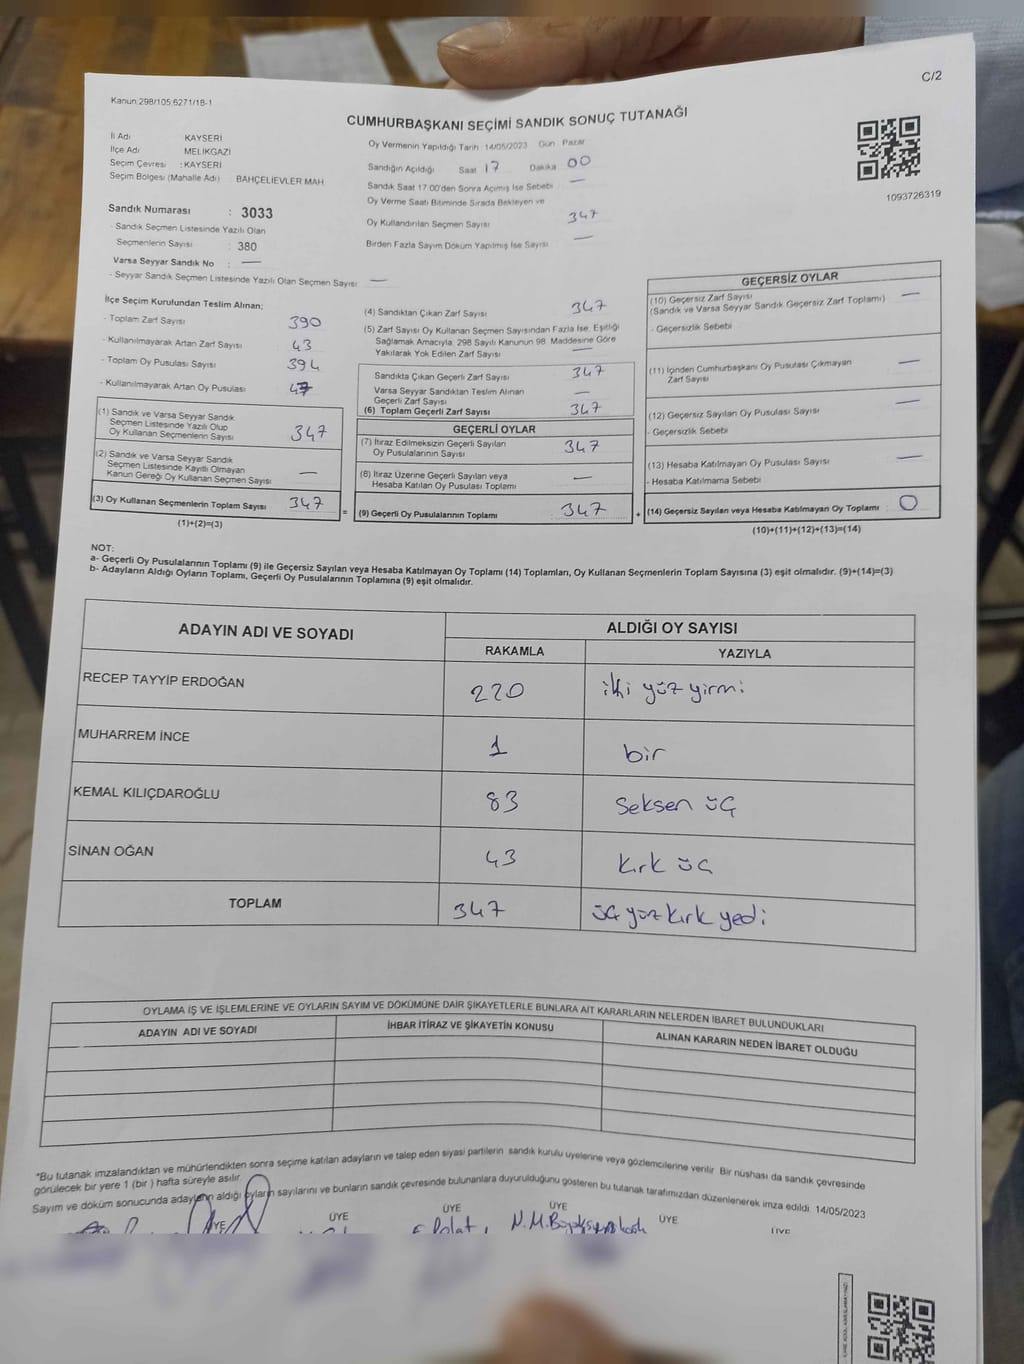 C/2
Kanun:298/105;6271/18-1
CUMHURBAŞKANI SEÇİMİ SANDIK SONUÇ TUTANAĞI
İl Adı KAYSERİ
İlçe Adı MELİKGAZİ
Seçim Çevresi : KAYSERİ
Seçim Bölgesi (Mahalle Adı) BAHÇELİEVLER MAH
Sandık Numarası : 3033
- Sandık Seçmen Listesinde Yazılı Olan
Seçmenlerin Sayısı : 380
Varsa Seyyar Sandık No : —
- Seyyar Sandık Seçmen Listesinde Yazılı Olan Seçmen Sayısı —
Oy Vermenin Yapıldığı Tarih 14/05/2023 Gün Pazar
Sandığın Açıldığı Saat 17 Dakika 00
Sandık Saat 17:00'den Sonra Açımış İse Sebebi —
Oy Verme Saati Bitiminde Sırada Bekleyen ve
Oy Kullandırılan Seçmen Sayısı 347
Birden Fazla Sayım Döküm Yapılmış İse Sayısı —
1093726319
İlçe Seçim Kurulundan Teslim Alınan;
- Toplam Zarf Sayısı 390
- Kullanılmayarak Artan Zarf Sayısı 43
- Toplam Oy Pusulası Sayısı 394
- Kullanılmayarak Artan Oy Pusulası 47
(1) Sandık ve Varsa Seyyar Sandık
Seçmen Listesinde Yazılı Olup
Oy Kullanan Seçmenlerin Sayısı 347
(2) Sandık ve Varsa Seyyar Sandık
Seçmen Listesinde Kayıtlı Olmayan
Kanun Gereği Oy Kullanan Seçmen Sayısı —
(3) Oy Kullanan Seçmenlerin Toplam Sayısı 347
(1)+(2)=(3)
(4) Sandıktan Çıkan Zarf Sayısı 347
(5) Zarf Sayısı Oy Kullanan Seçmen Sayısından Fazla İse, Eşitliği
Sağlamak Amacıyla, 298 Sayılı Kanunun 98. Maddesine Göre
Yakılarak Yok Edilen Zarf Sayısı —
Sandıkta Çıkan Geçerli Zarf Sayısı 347
Varsa Seyyar Sandıktan Teslim Alınan
Geçerli Zarf Sayısı —
(6) Toplam Geçerli Zarf Sayısı 347
GEÇERLİ OYLAR
(7) İtiraz Edilmeksizin Geçerli Sayılan
Oy Pusulalarının Sayısı 347
(8) İtiraz Üzerine Geçerli Sayılan veya
Hesaba Katılan Oy Pusulası Toplamı —
= (9) Geçerli Oy Pusulalarının Toplamı 347
GEÇERSİZ OYLAR
(10) Geçersiz Zarf Sayısı —
(Sandık ve Varsa Seyyar Sandık Geçersiz Zarf Toplamı)
- Geçersizlik Sebebi
(11) İçinden Cumhurbaşkanı Oy Pusulası Çıkmayan
Zarf Sayısı —
(12) Geçersiz Sayılan Oy Pusulası Sayısı —
- Geçersizlik Sebebi
(13) Hesaba Katılmayan Oy Pusulası Sayısı —
- Hesaba Katılmama Sebebi
+ (14) Geçersiz Sayılan veya Hesaba Katılmayan Oy Toplamı : 0
(10)+(11)+(12)+(13)=(14)
NOT:
a- Geçerli Oy Pusulalarının Toplamı (9) ile Geçersiz Sayılan veya Hesaba Katılmayan Oy Toplamı (14) Toplamları, Oy Kullanan Seçmenlerin Toplam Sayısına (3) eşit olmalıdır. (9)+(14)=(3)
b- Adayların Aldığı Oyların Toplamı, Geçerli Oy Pusulalarının Toplamına (9) eşit olmalıdır.
ADAYIN ADI VE SOYADI ALDIĞI OY SAYISI
RAKAMLA YAZIYLA
RECEP TAYYİP ERDOĞAN 220 iki yüz yirmi
MUHARREM İNCE 1 bir
KEMAL KILIÇDAROĞLU 83 Seksen üç
SİNAN OĞAN 43 kırk üç
TOPLAM 347 üç yüz kırk yedi
OYLAMA İŞ VE İŞLEMLERİNE VE OYLARIN SAYIM VE DÖKÜMÜNE DAİR ŞİKAYETLERLE BUNLARA AİT KARARLARIN NELERDEN İBARET BULUNDUKLARI
ADAYIN ADI VE SOYADI İHBAR İTİRAZ VE ŞİKAYETİN KONUSU ALINAN KARARIN NEDEN İBARET OLDUĞU
*Bu tutanak imzalandıktan ve mühürlendikten sonra seçime katılan adayların ve talep eden siyasi partilerin sandık kurulu üyelerine veya gözlemcilerine verilir. Bir nüshası da sandık çevresinde
görülecek bir yere 1 (bir ) hafta süreyle asılır.
Sayım ve döküm sonucunda adayların aldığı oyların sayılarını ve bunların sandık çevresinde bulunanlara duyurulduğunu gösteren bu tutanak tarafımızdan düzenlenerek imza edildi. 14/05/2023
ÜYE ÜYE ÜYE ÜYE ÜYE ÜYE
Polat